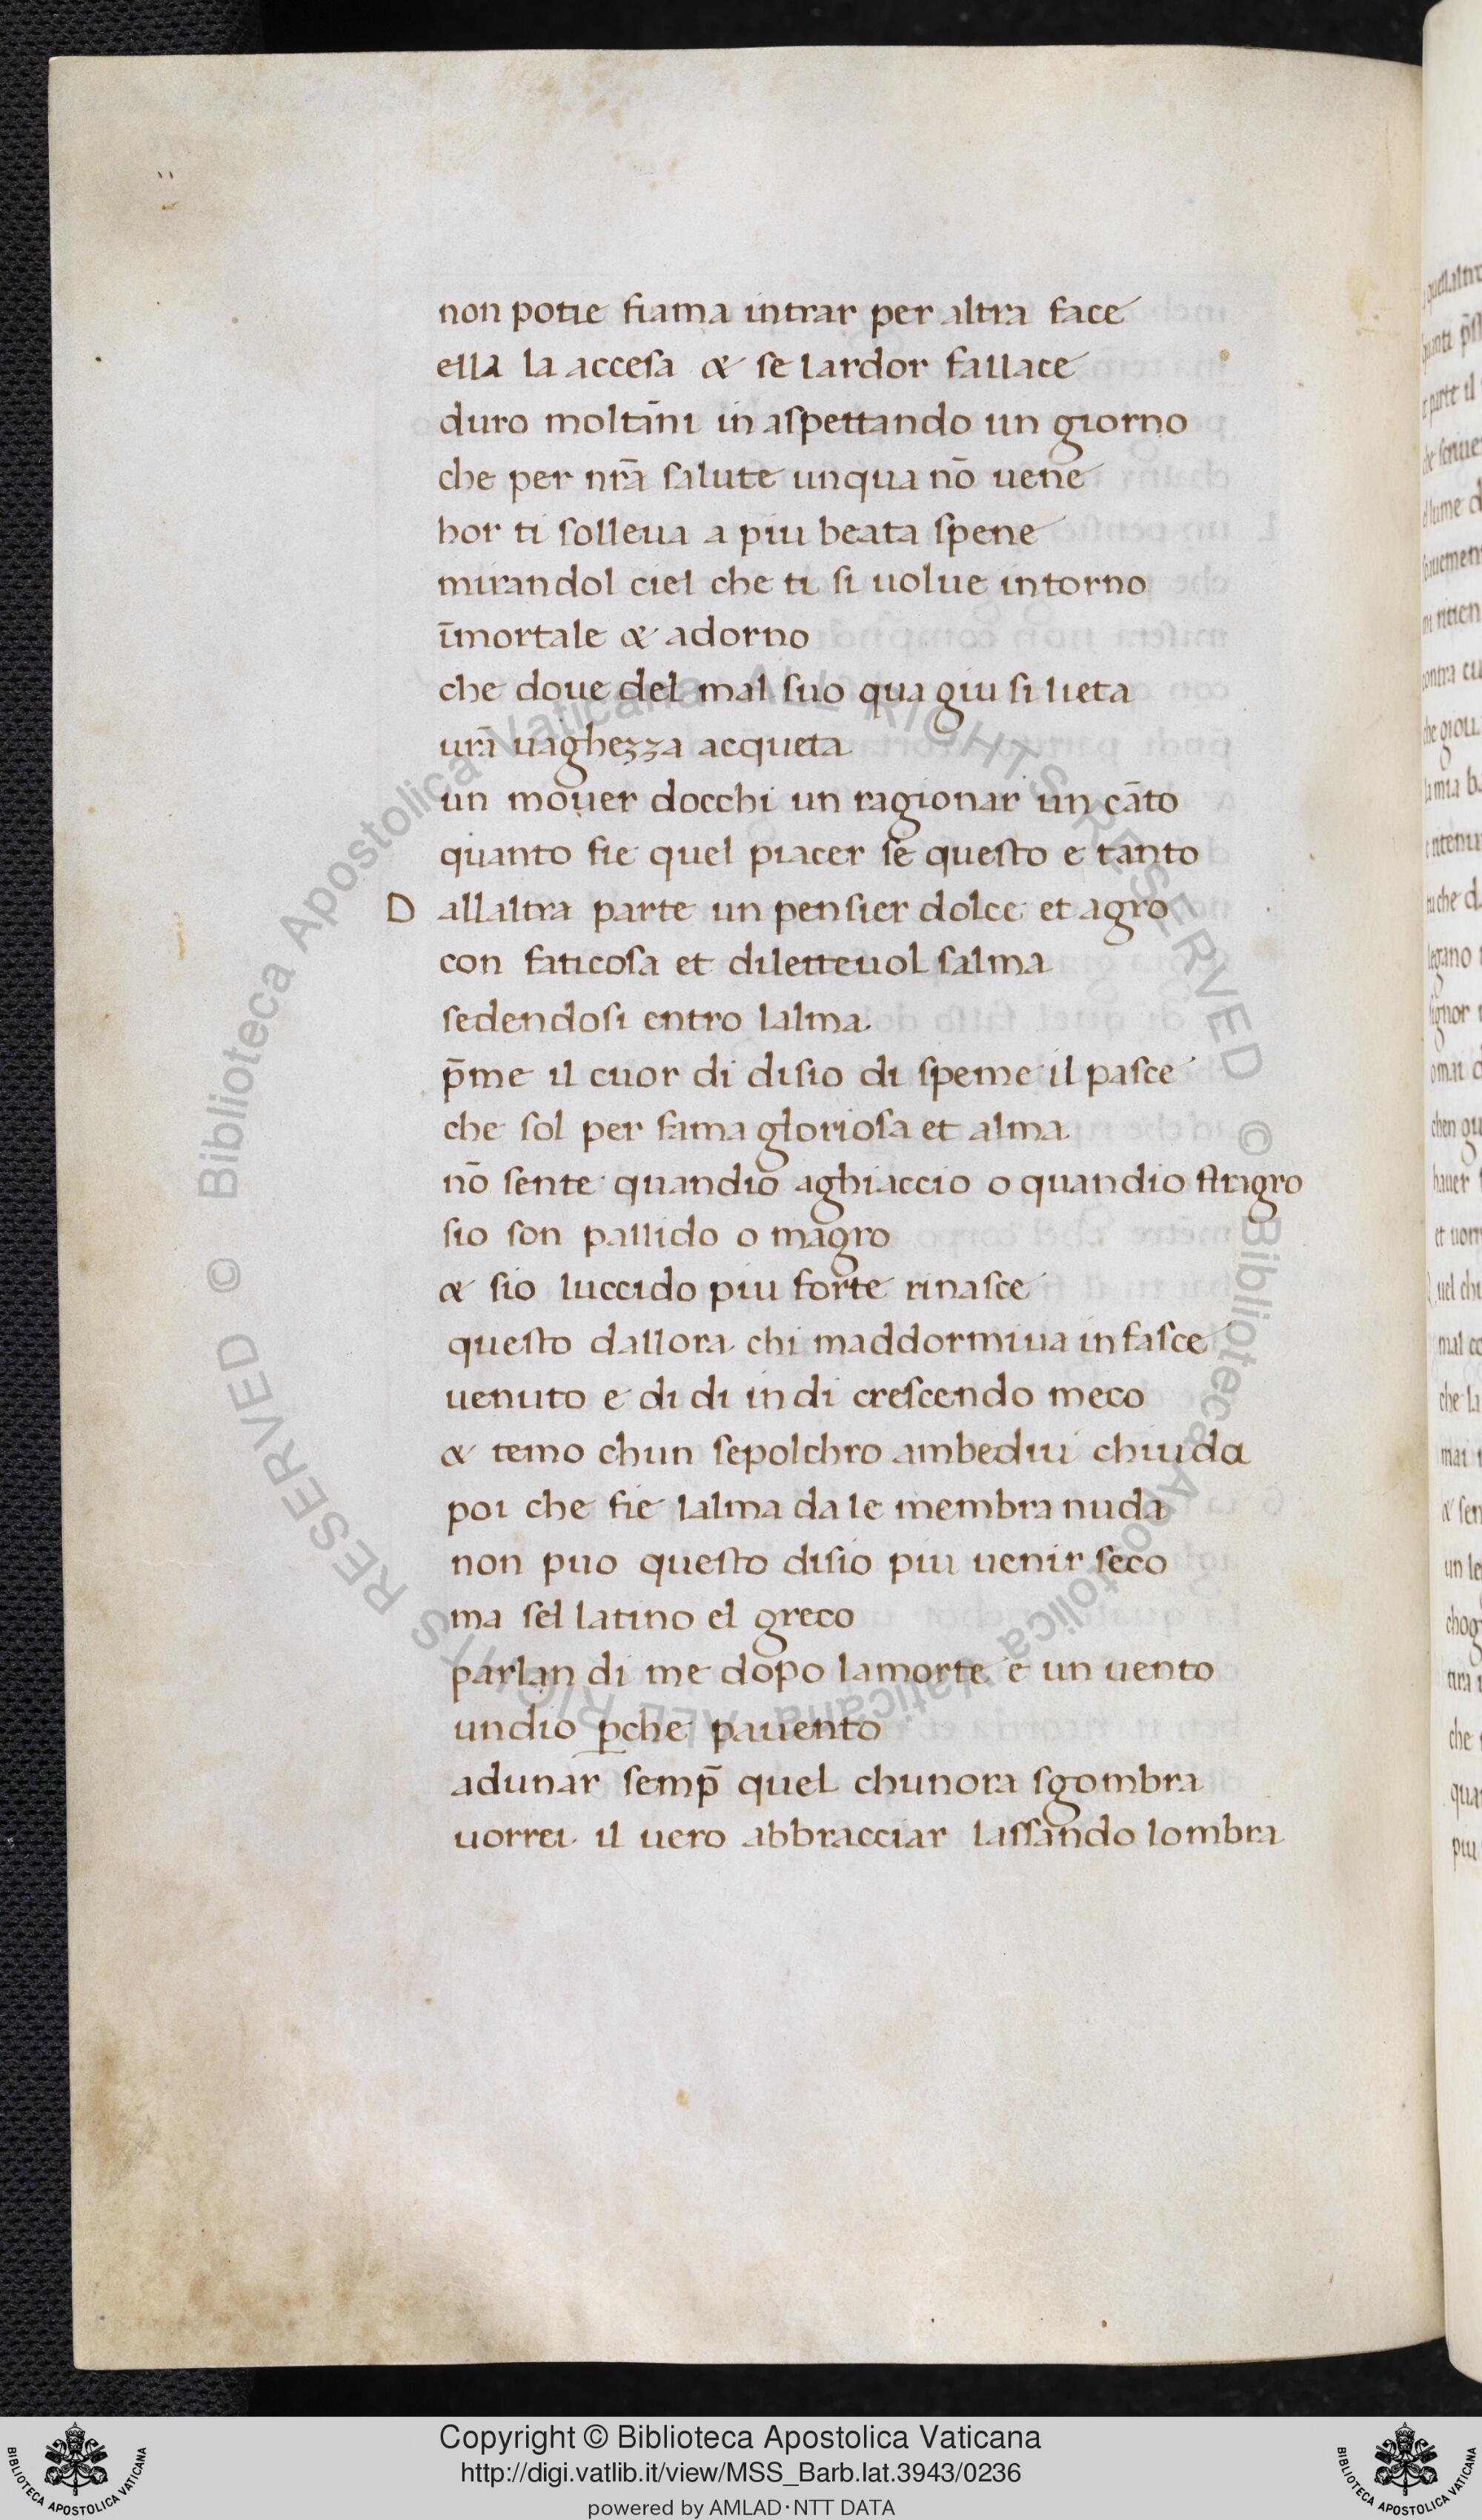 non potie fiama intrar per altra face
ella la accesa & se lardor fallace
duro moltāni in aspettando un giorno
che per nrā salute unqua nō uene
hor ti solleua a piu beata spene
mirandol ciel che ti si uolue intorno
īmortale & adorno
che doue del mal suo qua giu si lieta
urā uaghezza acqueta
un mouer docchi un ragionar un cāto
quanto fie quel piacer se questo e tanto
D allaltra parte un pensier dolce et agro
con faticosa et diletteuol salma
sedendosi entro lalma
p̄me il cuor di disio di speme il pasce
che sol per fama gloriosa et alma
nō sente quandio aghiaccio o quandio flragro
sio son pallido o magro
& sio luccido piu forte rinasce
questo dallora chi maddormiua in fasce
uenuto e di di in di crescendo meco
& temo chun sepolchro ambedui chiuda
poi che fie lalma da le membra nuda
non puo questo disio piu uenir seco
ma sel latino el greco
parlan di me dopo la morte e un uento
undio ꝑche pauento
adunar semp̄ quel chunora sgombra
uorrei il uero abbracciar lassando lombra
Copyright © Biblioteca Apostolica Vaticana
http://digi.vatlib.it/view/MSS_Barb.lat.3943/0236
powered by AMLAD·NTT DATA
BIBLIOTECA APOSTOLICA VATICANA
BIBLIOTECA APOSTOLICA VATICANA
© Biblioteca Apostolica Vaticana ALL RIGHTS RESERVED
© Biblioteca Apostolica Vaticana ALL RIGHTS RESERVED